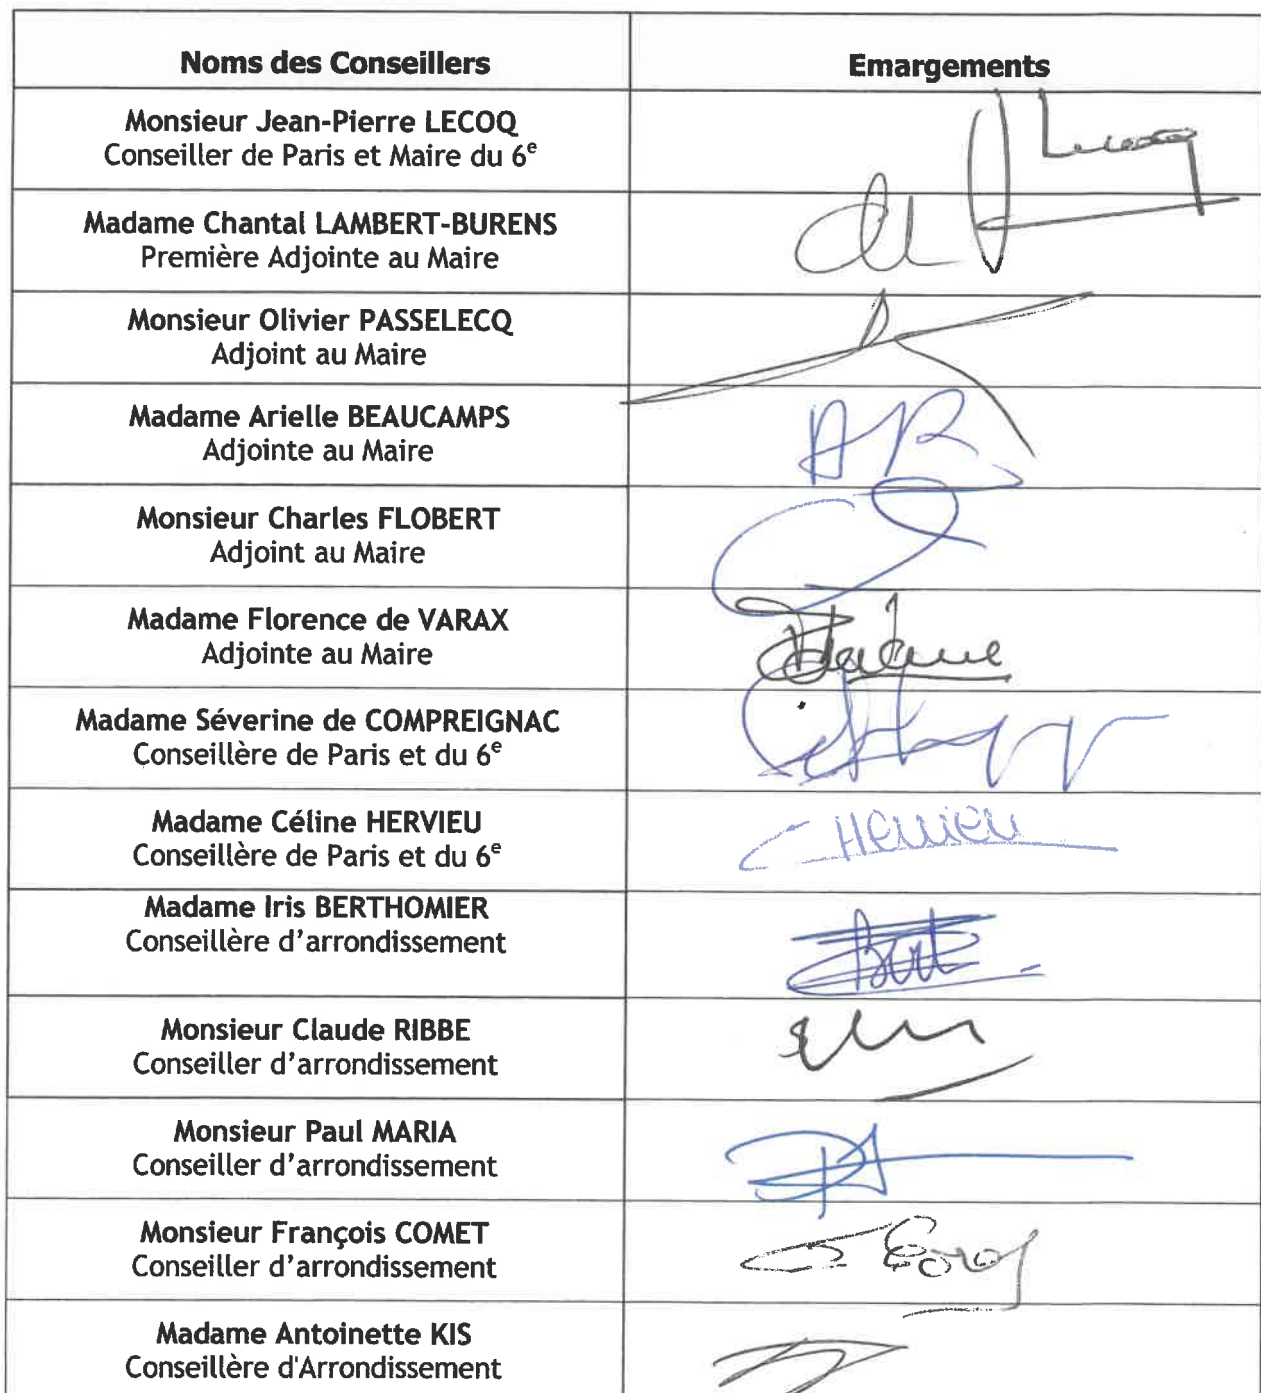 Noms des Conseillers
Emargements
Monsieur Jean-Pierre LECOQ
Conseiller de Paris et Maire du 6e
Madame Chantal LAMBERT-BURENS
Première Adjointe au Maire
Monsieur Olivier PASSELECQ
Adjoint au Maire
Madame Arielle BEAUCAMPS
Adjointe au Maire
AB
Monsieur Charles FLOBERT
Adjoint au Maire
Madame Florence de VARAX
Adjointe au Maire
Madame Séverine de COMPREIGNAC
Conseillère de Paris et du 6e
Madame Céline HERVIEU
Conseillère de Paris et du 6e
C HERVIEU
Madame Iris BERTHOMIER
Conseillère d’arrondissement
Monsieur Claude RIBBE
Conseiller d’arrondissement
Monsieur Paul MARIA
Conseiller d’arrondissement
Monsieur François COMET
Conseiller d’arrondissement
Madame Antoinette KIS
Conseillère d'Arrondissement